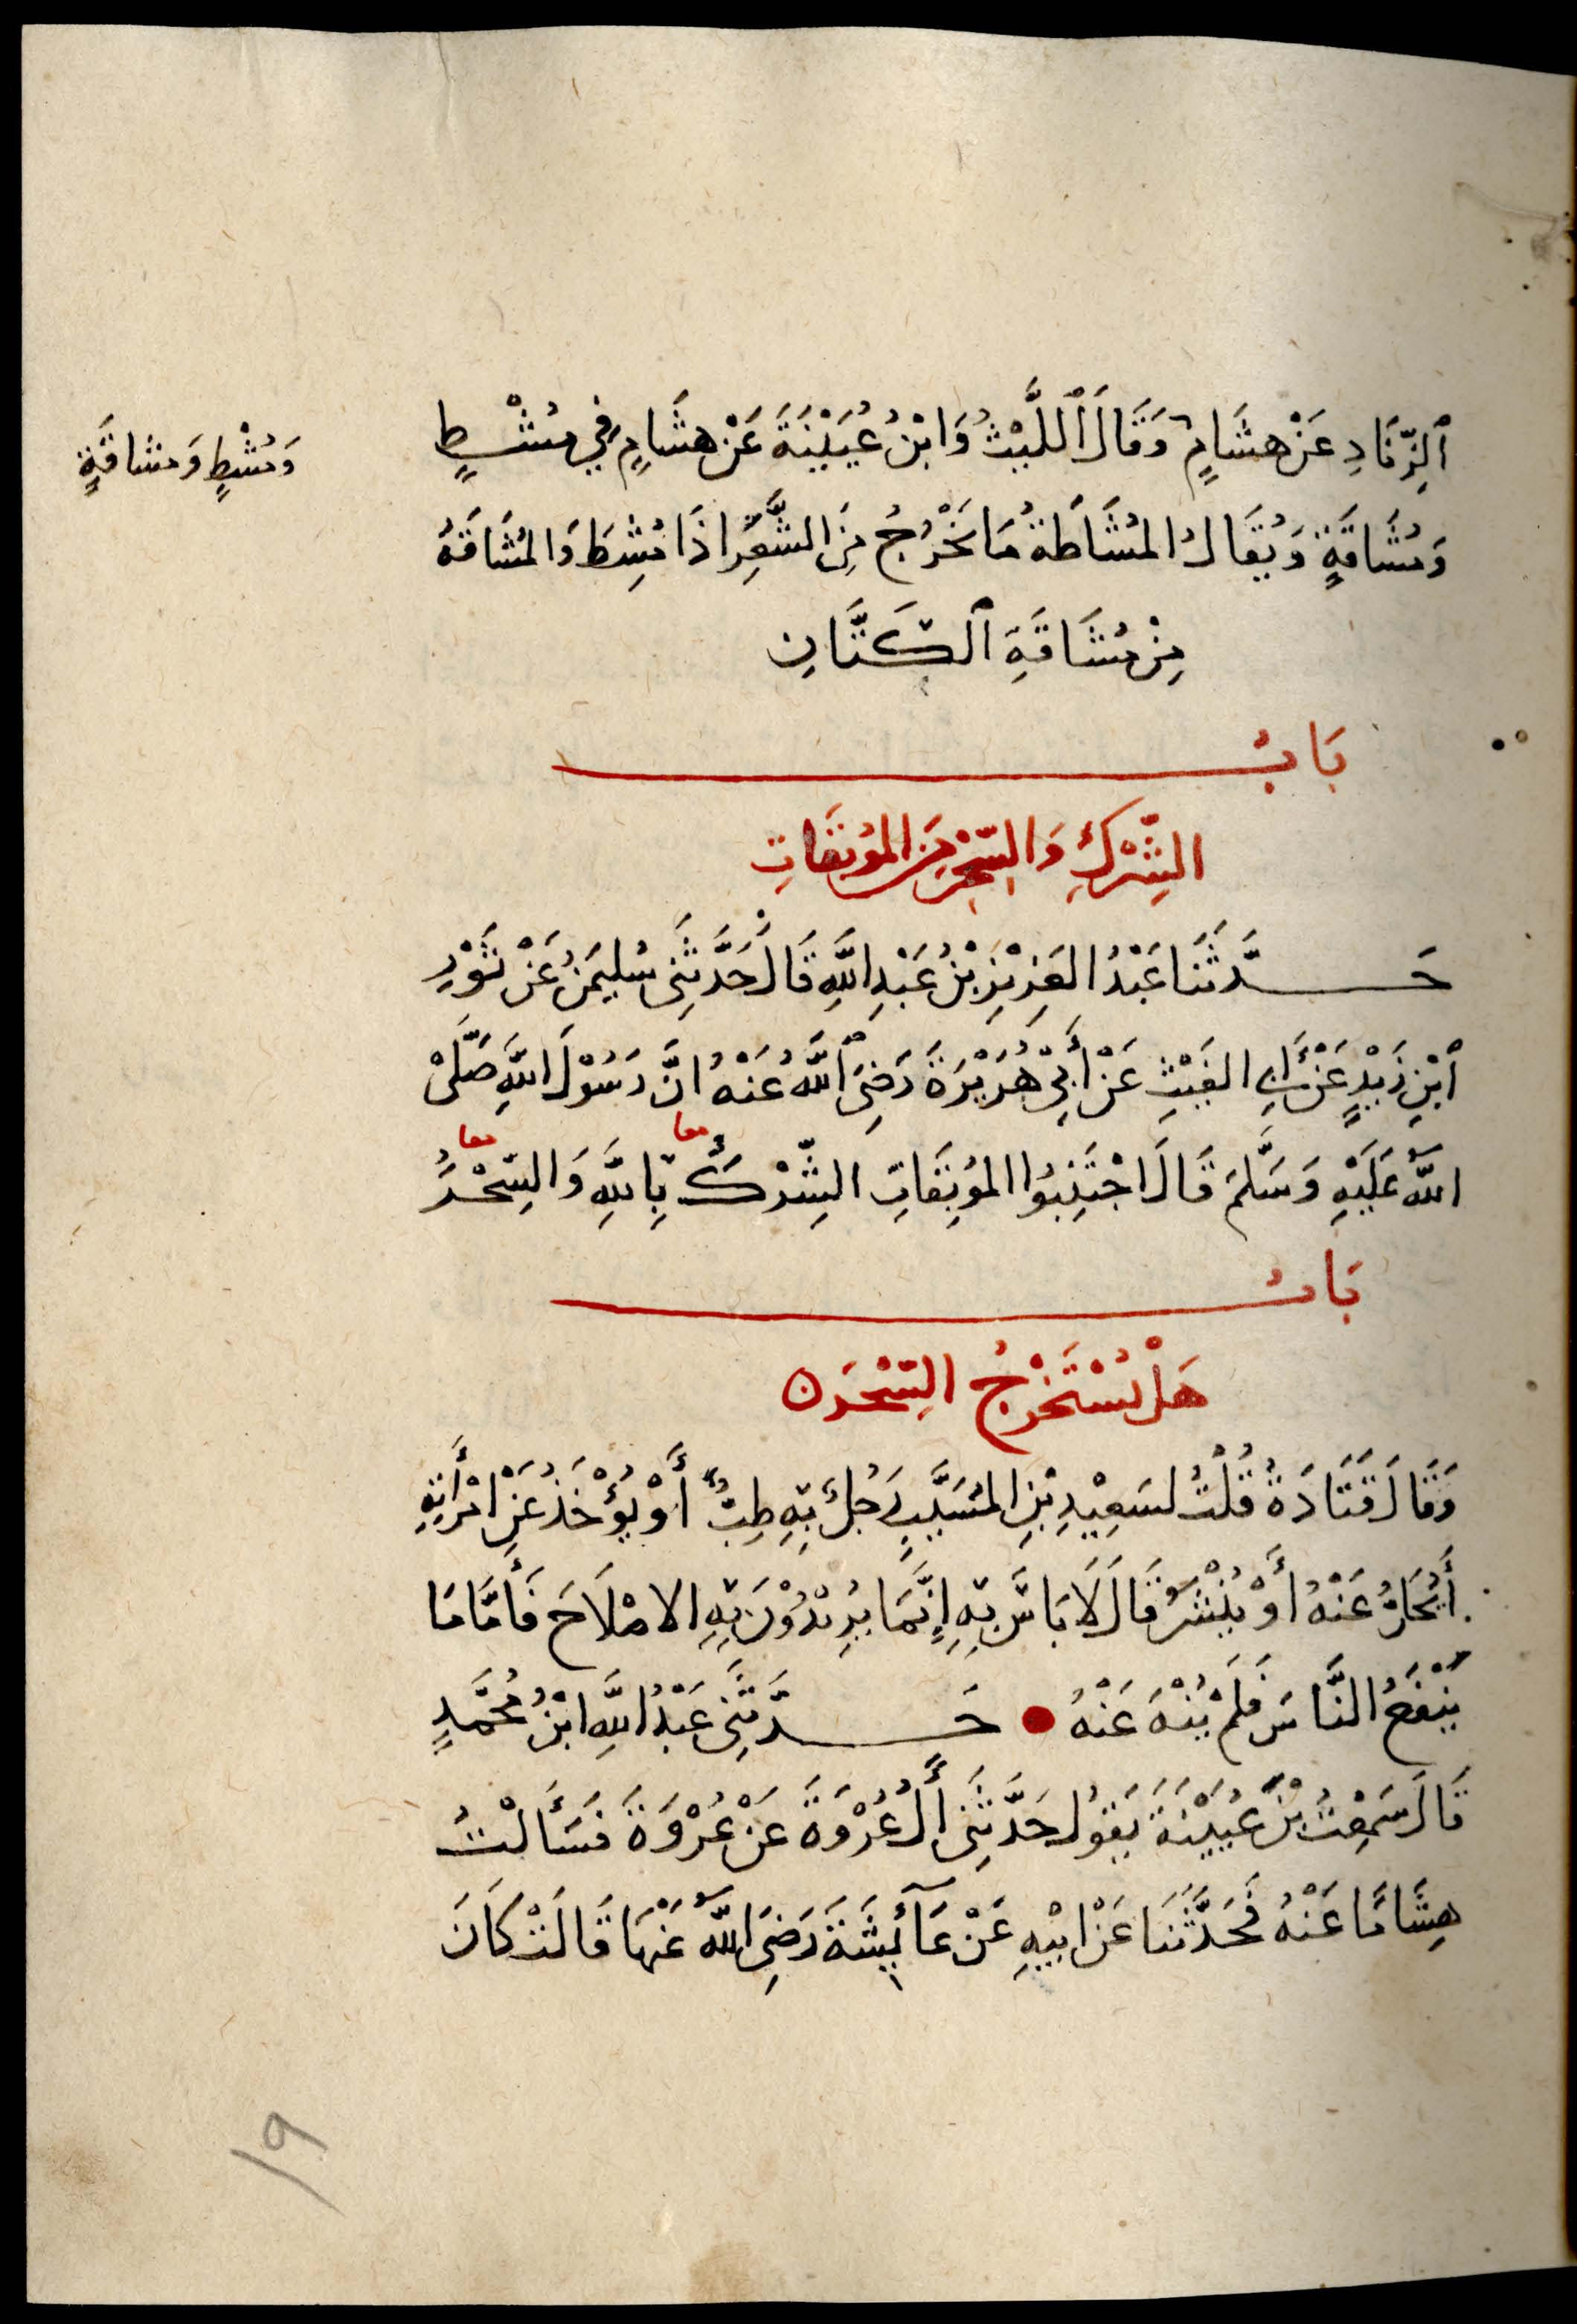 ٱلزِّنَادِ عَنْ هِشَامٍ وَقَالَ ٱللَّيْثُ وَابْنُ عُيَيْنَةَ عَنْ هِشَامٍ فِي مُشْطٍ
وَمُشَاقَةٍ وَيُقَالُ المُشَاطَةُ مَا يَخْرُجُ مِنَ الشَّعَرِ اذَا مُشِطَ وَالمُشَاقَةُ
مِنْ مُشَاقَةِ ٱلكَتَّانِ
وَمُشْطٍ وَمشَاقَةٍ
بَابُ
الشِّرْكِ وَالسِّحْرِ مِنَ المُوبِقَاتِ
حَدَّثَنَا عَبْدُ العَزِيْزِ بْنُ عَبْدِ اللَّهِ قَالَ حَدَّثَنِى سُلَيمَنُ عَنْ ثَوْرِ
ٱبْنِ زَيْدٍ عَنْ أَبِى الغَيْثِ عَنْ أَبِيْ هُرَيْرَةَ رَضِىَ ٱللَّهُ عَنْهُ انَّ رَسُوْلَ اللَّهِ صَلَّىْ
اللَّهُ عَلَيْهِ وَسَلَّمَ قَالَ اجْتَنِبُوا المُوبِقَاتِ الشِّرْكُ بِاللَّهِ وَالسِّحْرُ
معا معا
بَابُ
هَلْ يُسْتَخْرَجُ السِّحْرُ
وَقَالَ قَتَادَةُ قُلْتُ لسَعِيْدِ بْنِ المُسَيَّبِ رَجُلٌ بِهِ طِبٌّ أَوْ يُؤْخَذُ عَنِ امْرَأَتِهِ
أَيُحَلُّ عَنْهُ أَوْ يُنْشَرُ قَالَ لَا بَاسَ بِهِ إِنَّمَا يُرِيْدُوْنَ بِهِ الاصْلَاحَ فَأَمَّا مَا
يَنْفَعُ النَّاسَ فَلَمْ يُنْهَ عَنْهُ حَدَّثَنِى عَبْدُ اللَّهِ ابْنُ مُحَمَّدٍ
قَالَ سَمِعْتُ بْنَ عُيَيْنَةَ يَقُولُ حَدَّثَنِى أَلُ عُرْوَةَ عَنْ عُرْوَةَ فَسَأَلْتُ
هِشَامًا عَنْهُ فَحَدَّثَنَا عَنْ ابِيْهِ عَنْ عَآئِشَةَ رَضِىَ اللَّهُ عَنْهَا قَالَتْ كَانَ
١٩